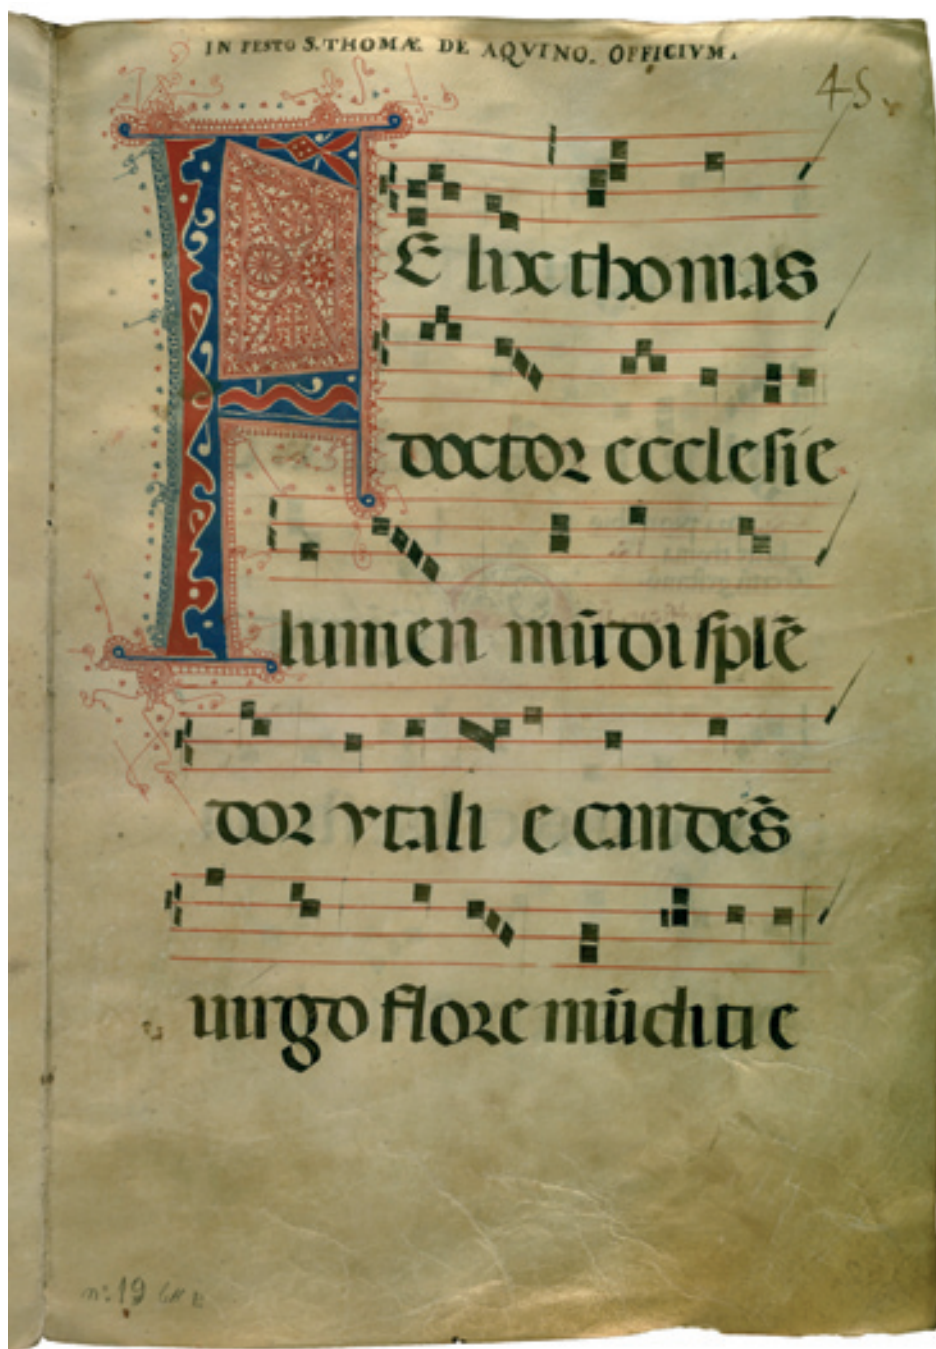 IN FESTO S. THOMÆ DE AQVINO. OFFICIVM.
45.
FElix thomas
doctor ecclesie
lumen mūdi splē
dor ytalie candēs
uirgo flore mūditie
nº 19